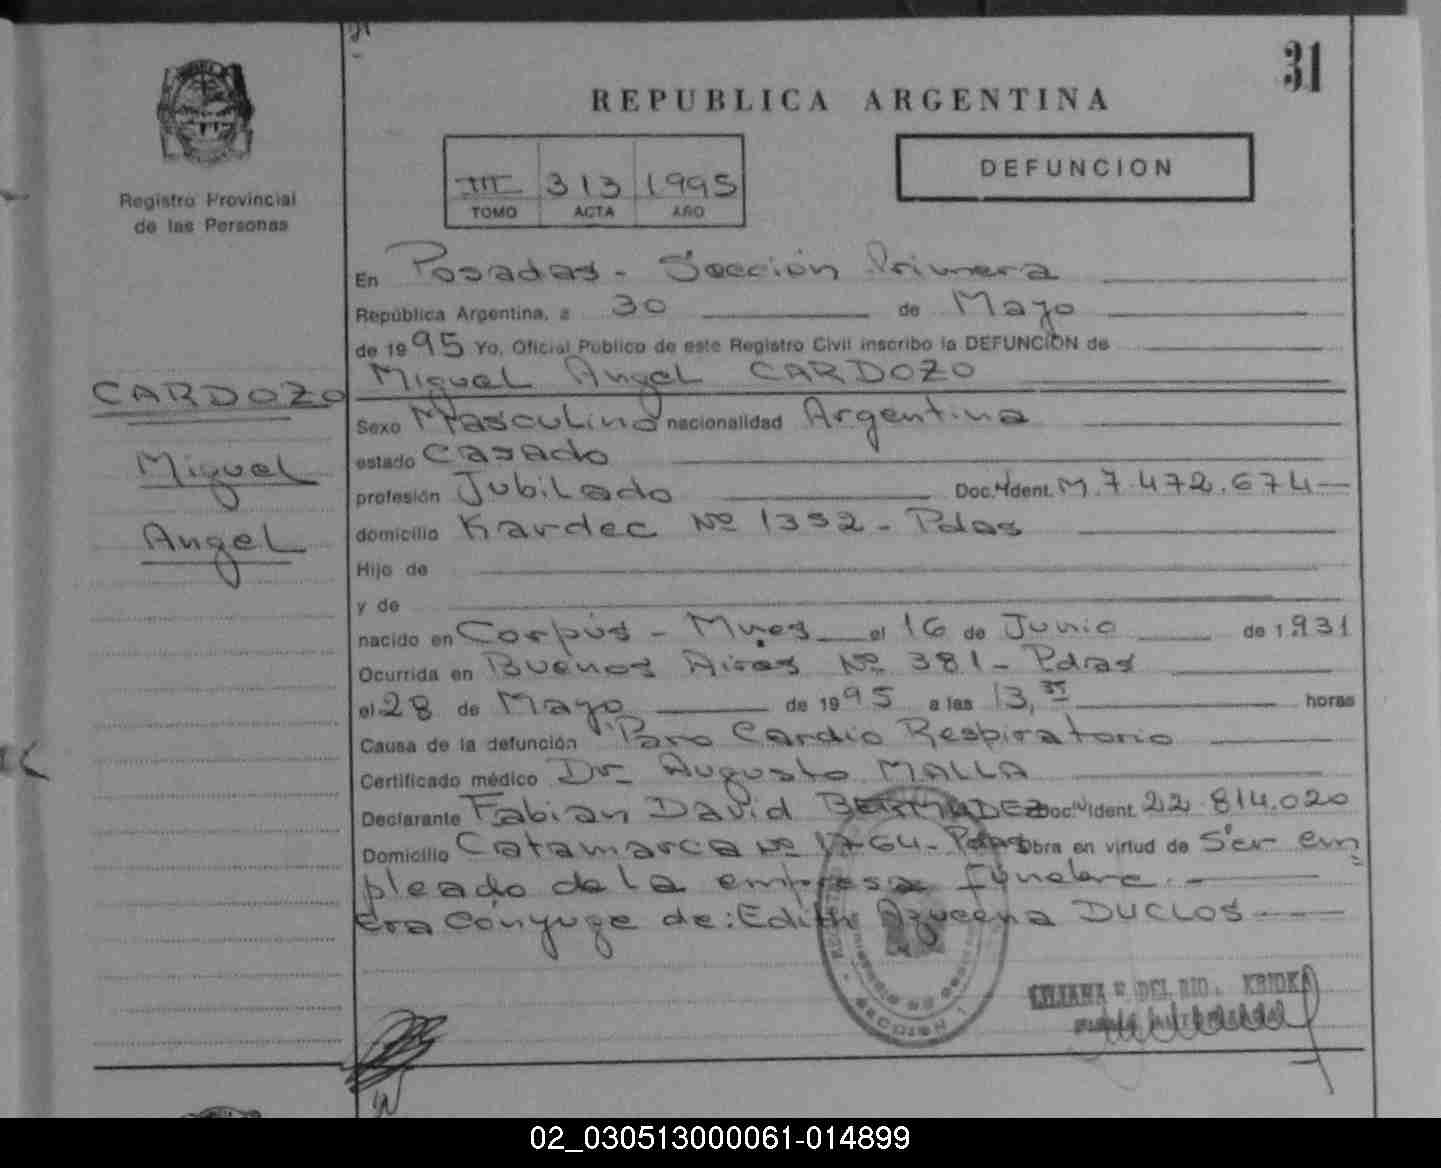 31
REPUBLICA ARGENTINA
Registro Provincial
de las Personas
III 313 1995
TOMO ACTA AÑO
DEFUNCION
En Posadas - Sección Primera
República Argentina, a 30 de Mayo
de 1995 Yo, Oficial Público de este Registro Civil inscribo la DEFUNCION de
Miguel Angel CARDOZO
CARDOZO
Miguel
Angel
Sexo Masculino nacionalidad Argentina
estado Casado
profesión Jubilado Doc. Ident. M. 7.472.674
domicilio Kardec Nº 1352 - Pdas
Hijo de
y de
nacido en Corpus - Mnes el 16 de Junio de 1.931
Ocurrida en Buenos Aires Nº 381 - Pdas
el 28 de Mayo de 1995 a las 13,35 horas
Causa de la defunción Paro Cardio Respiratorio
Certificado médico Dr. Augusto MALLA
Declarante Fabian David BERMUDEZ Doc. Ident. 22.814.020
Domicilio Catamarca Nº 1764 - Pdas Obra en virtud de Ser em=
pleado de la empresa fúnebre.-
Era Cónyuge de: Edith Azucena DUCLOS
SECCION 1
DEL RIO
02_030513000061-014899